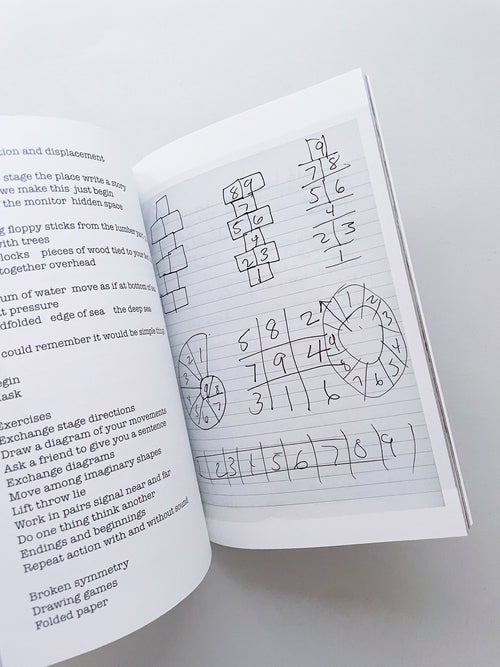 tion and displacement
stage the place write a story
we make this just begin
the monitor hidden space
g floppy sticks from the lumber
with trees
locks pieces of wood tied to your
together overhead
um of water move as if at bottom of
t pressure
dfolded edge of sea the deep sea
could remember it would be simple
egin
ask
Exercises
Exchange stage directions
Draw a diagram of your movements
Ask a friend to give you a sentence
Exchange diagrams
Move among imaginary shapes
Lift throw lie
Work in pairs signal near and far
Do one thing think another
Endings and beginnings
Repeat action with and without sound
Broken symmetry
Drawing games
Folded paper
8 9
7
5 6
4
2 3
1
9
7 8
5 6
4
2 3
1
8 2
7 9 4
3 1 6
1 2 3 4 5 6 7 8
2 3 4 5 6 7 8 9